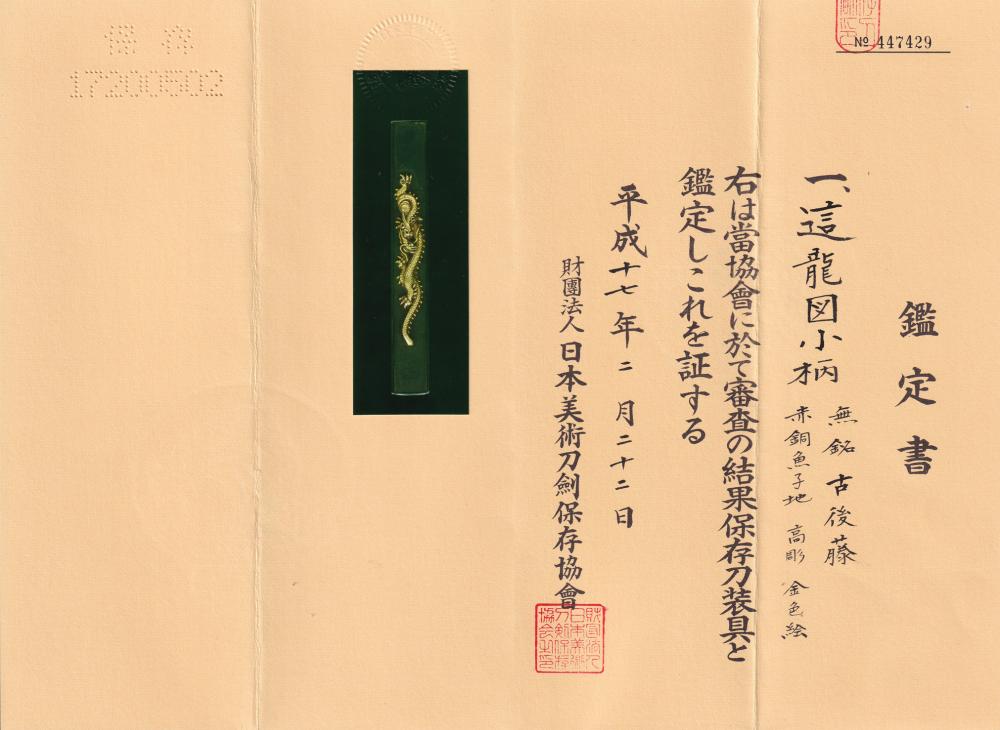 № 447429
鑑定書
一、這龍図小柄
無銘 古後藤
赤銅魚子地 高彫 金色絵
右は當協會に於て審査の結果保存刀装具と
鑑定しこれを証する
平成十七年二月二十二日
財團法人 日本美術刀劍保存協會
財団法人
日本美術
刀剣保存
協会之印
保存
17200502